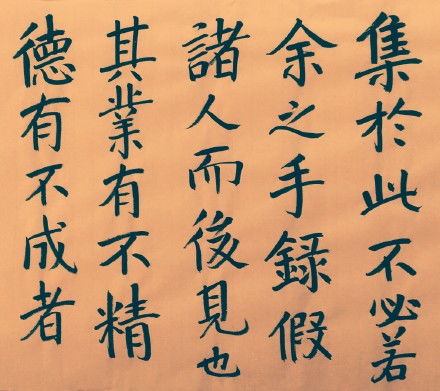 集於此不必若
余之手錄假
諸人而後見也
其業有不精
德有不成者